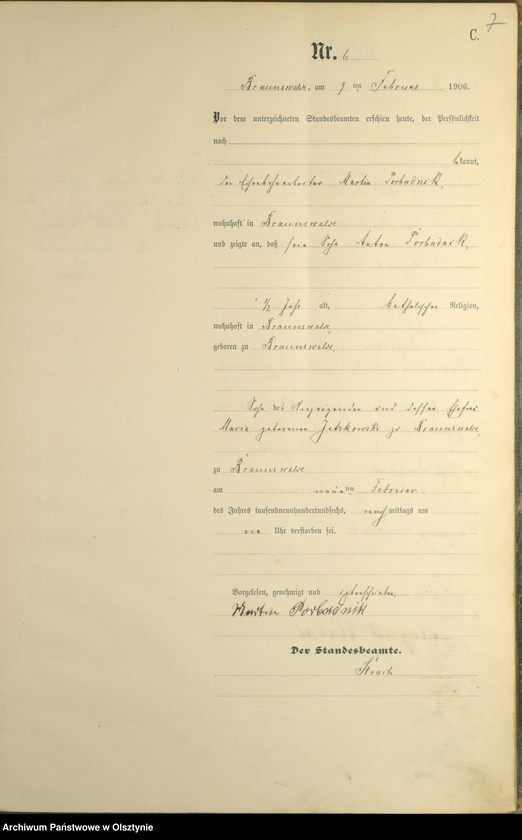 7
C.
Nr. 6
Braunswalde, am 9 ten Februar 1906.
Vor dem unterzeichneten Standesbeamten erschien heute, der Persönlichkeit
nach
bekannt,
der Eisenbahnarbeiter Martin Porbadnik,
wohnhaft in Braunswalde
und zeigte an, daß sein Sohn Anton Porbadnik,
1/2 Jahr alt, katholischer Religion,
wohnhaft in Braunswalde,
geboren zu Braunswalde,
Sohn des Anzeigenden und dessen Ehefrau
Maria geborenen zu Braunswalde,
zu Braunswalde
am neunten Februar
des Jahres tausendneunhundertundsechs, nachmittags um
ein Uhr verstorben sei.
Vorgelesen, genehmigt und unterschrieben.
Martin Porbadnik
Der Standesbeamte.
Archiwum Państwowe w Olsztynie